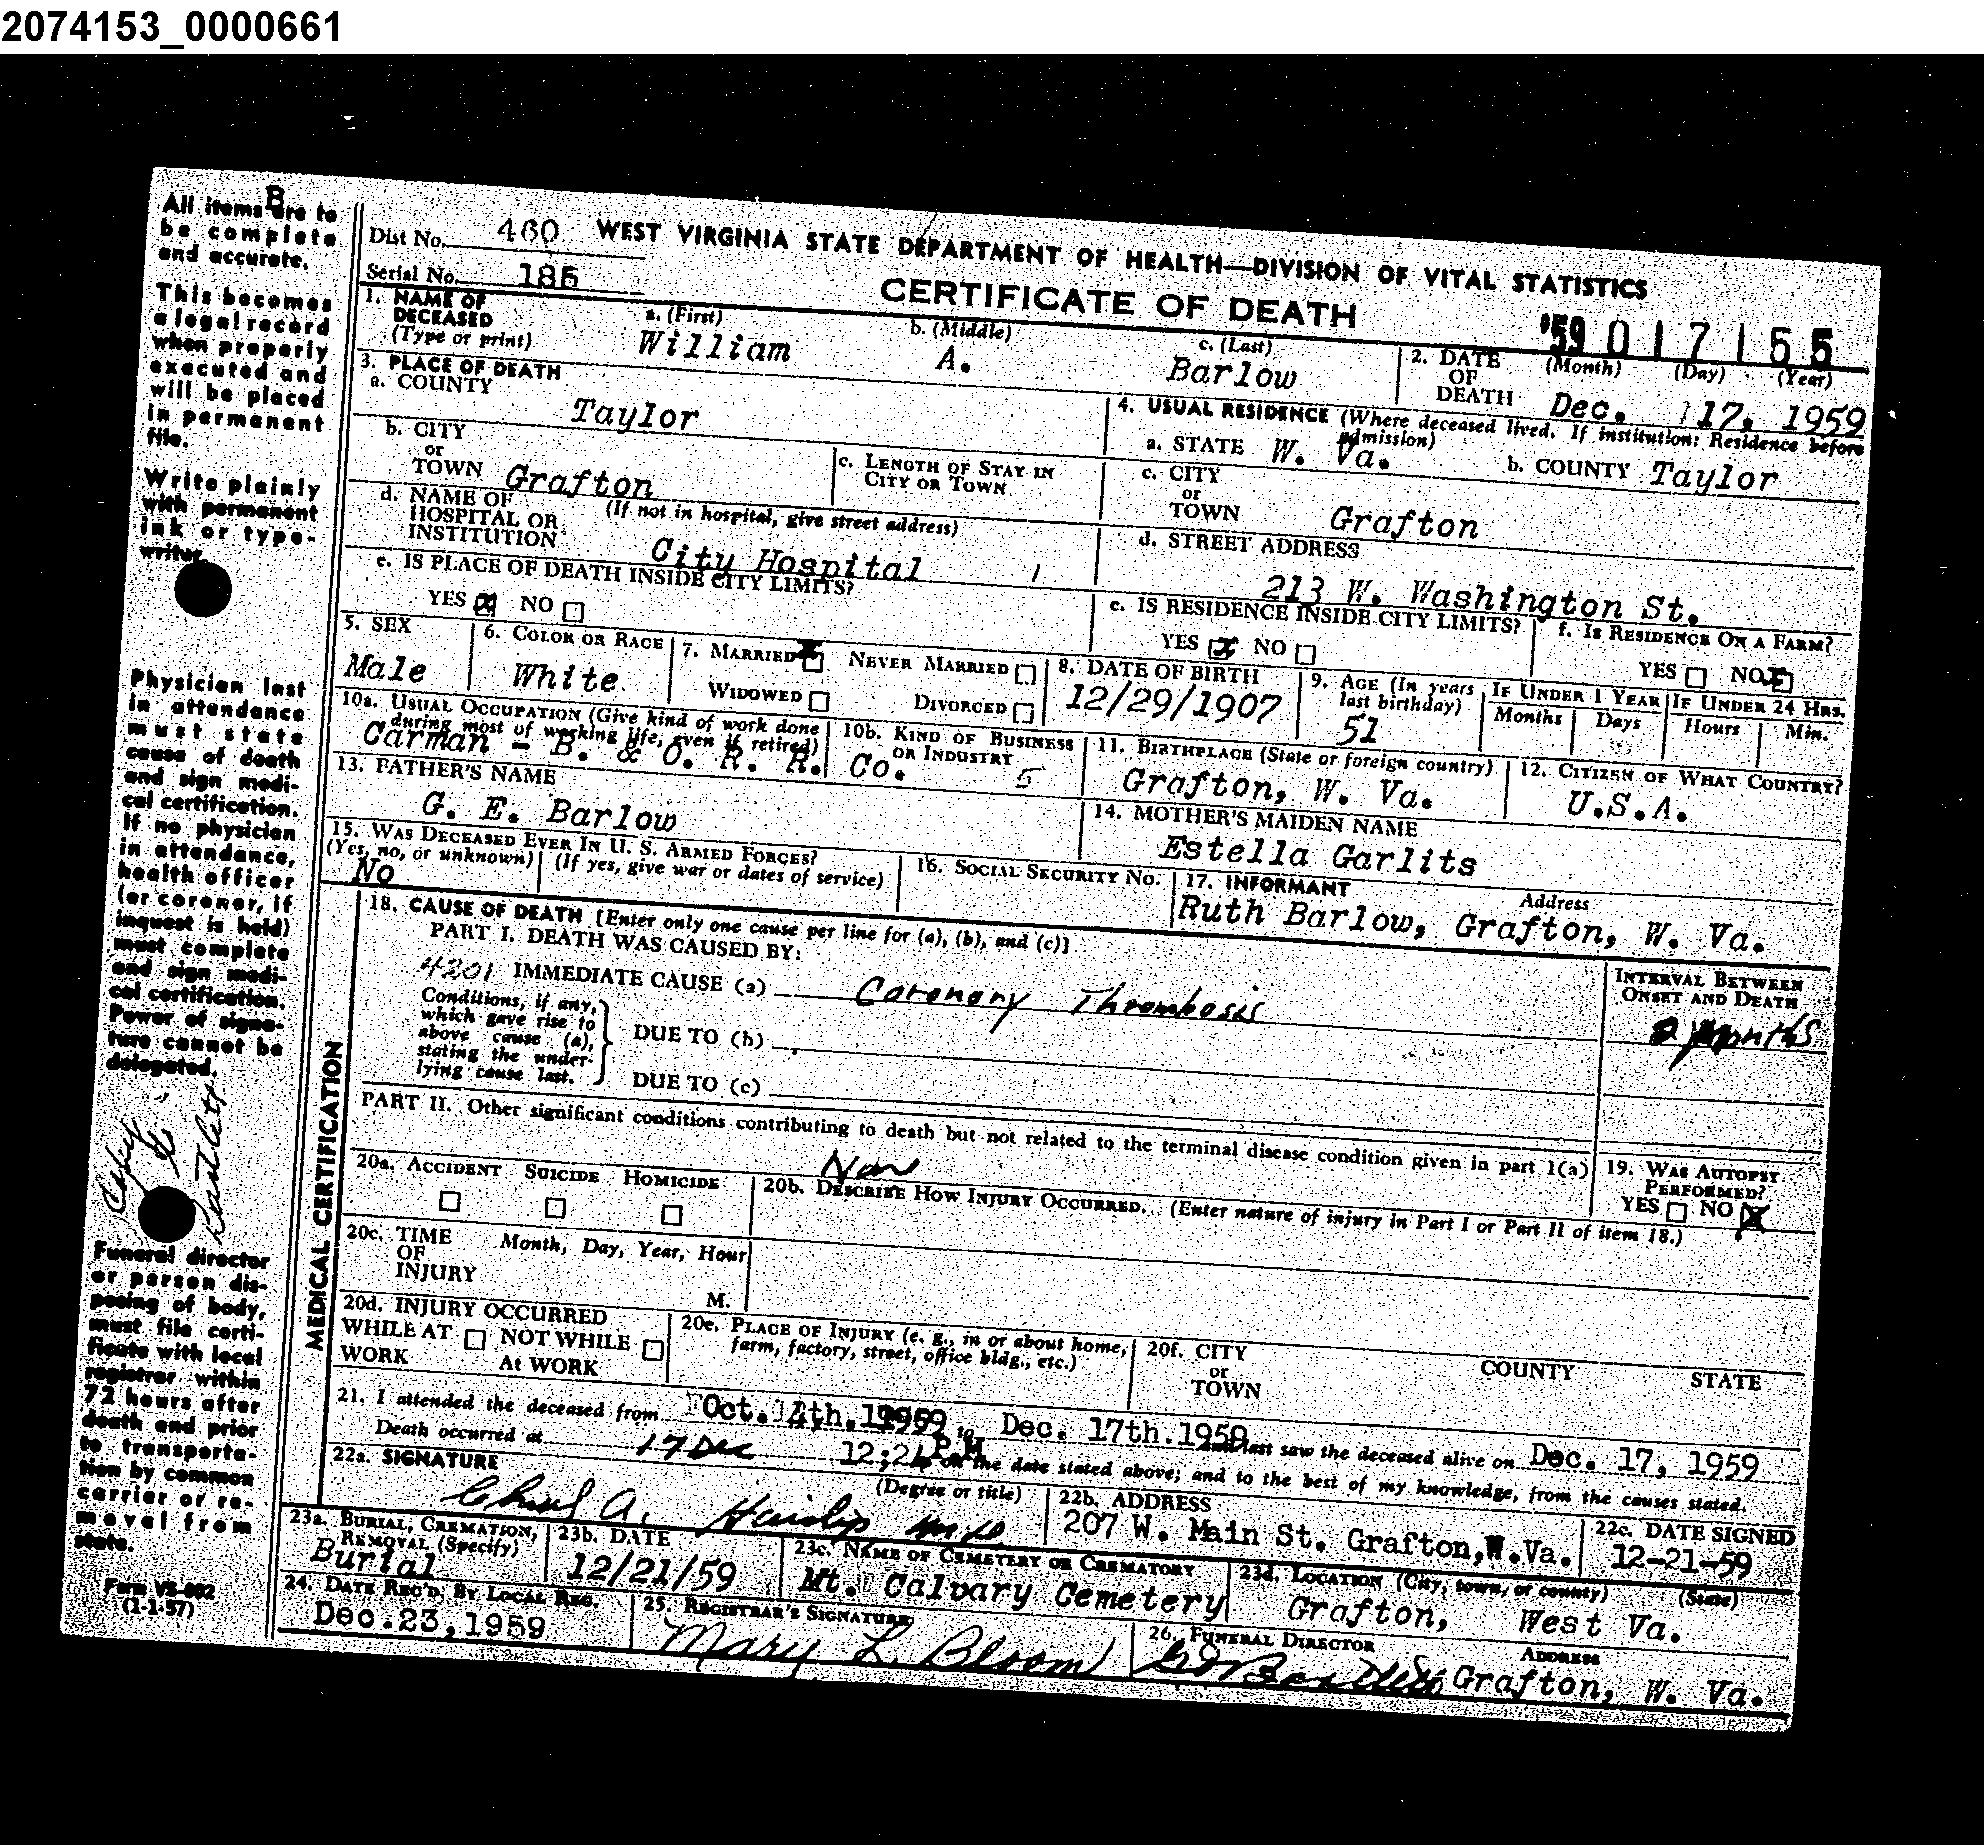 2074153_0000661
B
All items are to
be complete
and accurate.
This becomes
a legal record
when properly
executed and
will be placed
in permanent
file.
Write plainly
with permanent
ink or type-
writer.
Physician last
in attendance
must state
cause of death
and sign medi-
cal certification.
If no physician
in attendance,
health officer
(or coroner, if
inquest is held)
must complete
and sign medi-
cal certification.
Power of signa-
ture cannot be
delegated.
Funeral director
or person dis-
posing of body,
must file certi-
ficate with local
registrar within
72 hours after
death and prior
to transporta-
tion by common
carrier or re-
moval from
state.
Form VS-002
(1-1-57)
Dist No. 460 WEST VIRGINIA STATE DEPARTMENT OF HEALTH—DIVISION OF VITAL STATISTICS
Serial No. 185
CERTIFICATE OF DEATH
'59 017155
1. NAME OF DECEASED (Type or print) a. (First) William b. (Middle) A. c. (Last) Barlow
2. DATE OF DEATH (Month) (Day) (Year) Dec. 17. 1959
3. PLACE OF DEATH
a. COUNTY Taylor
4. USUAL RESIDENCE (Where deceased lived. If institution: Residence before admission)
a. STATE W. Va. b. COUNTY Taylor
b. CITY or TOWN Grafton c. LENGTH OF STAY IN CITY OR TOWN
c. CITY or TOWN Grafton
d. NAME OF HOSPITAL OR INSTITUTION (If not in hospital, give street address) City Hospital
d. STREET ADDRESS 213 W. Washington St.
e. IS PLACE OF DEATH INSIDE CITY LIMITS?
YES X NO
e. IS RESIDENCE INSIDE CITY LIMITS?
YES X NO
f. IS RESIDENCE ON A FARM?
YES NO X
5. SEX Male
6. COLOR OR RACE White
7. MARRIED X NEVER MARRIED
WIDOWED DIVORCED
8. DATE OF BIRTH 12/29/1907
9. AGE (In years last birthday) 51
IF UNDER 1 YEAR Months Days
IF UNDER 24 HRS. Hours Min.
10a. USUAL OCCUPATION (Give kind of work done during most of working life, even if retired) Carman - B. & O. R. R.
10b. KIND OF BUSINESS OR INDUSTRY Co. 5
11. BIRTHPLACE (State or foreign country) Grafton, W. Va.
12. CITIZEN OF WHAT COUNTRY? U.S.A.
13. FATHER'S NAME G. E. Barlow
14. MOTHER'S MAIDEN NAME Estella Garlits
15. WAS DECEASED EVER IN U. S. ARMED FORCES?
(Yes, no, or unknown) (If yes, give war or dates of service)
No
16. SOCIAL SECURITY NO.
17. INFORMANT Address
Ruth Barlow, Grafton, W. Va.
MEDICAL CERTIFICATION
18. CAUSE OF DEATH [Enter only one cause per line for (a), (b), and (c)]
PART I. DEATH WAS CAUSED BY:
4201 IMMEDIATE CAUSE (a) Coronary Thrombosis
INTERVAL BETWEEN ONSET AND DEATH
2 months
Conditions, if any, which gave rise to above cause (a), stating the under-lying cause last.
DUE TO (b)
DUE TO (c)
PART II. Other significant conditions contributing to death but not related to the terminal disease condition given in part I(a)
19. WAS AUTOPSY PERFORMED?
YES NO X
20a. ACCIDENT SUICIDE HOMICIDE
20b. DESCRIBE HOW INJURY OCCURRED. (Enter nature of injury in Part I or Part II of item 18.)
20c. TIME OF INJURY Month, Day, Year, Hour M.
20d. INJURY OCCURRED
WHILE AT WORK NOT WHILE At WORK
20e. PLACE OF INJURY (e. g., in or about home, farm, factory, street, office bldg., etc.)
20f. CITY or TOWN COUNTY STATE
21. I attended the deceased from Oct. 4th. 1959 to Dec. 17th. 1959 and last saw the deceased alive on Dec. 17, 1959
Death occurred at 17 Dec P.M. on the date stated above; and to the best of my knowledge, from the causes stated.
22a. SIGNATURE (Degree or title)
A.
22b. ADDRESS 207 W. Main St. Grafton, W.Va.
22c. DATE SIGNED 12-21-59
23a. BURIAL, CREMATION, REMOVAL (Specify) Burial
23b. DATE 12/21/59
23c. NAME OF CEMETERY OR CREMATORY Mt. Calvary Cemetery
23d. LOCATION (City, town, or county) (State)
Grafton, West Va.
24. DATE REC'D. BY LOCAL REG. Dec.23,1959
25. REGISTRAR'S SIGNATURE Mary L. Bloom
26. FUNERAL DIRECTOR ADDRESS
Grafton, W. Va.